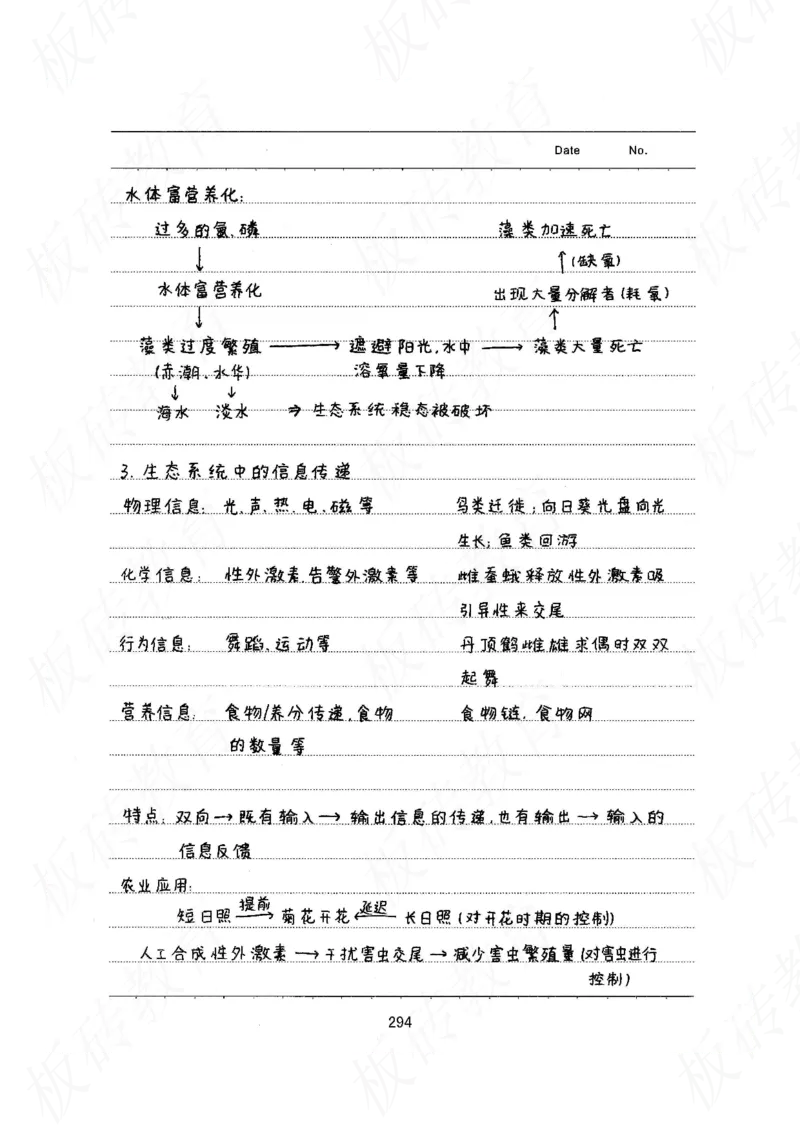 Date No.
水体富营养化:
过多的氮、磷 藻类加速死亡
↓ ↑(缺氧)
水体富营养化 出现大量分解者(耗氧)
↓ ↑
藻类过度繁殖 → 遮避阳光,水中 → 藻类大量死亡
(赤潮、水华) 溶氧量下降
↓ ↓
海水 淡水 ⇒ 生态系统稳态被破坏
3. 生态系统中的信息传递
物理信息: 光、声、热、电、磁等 鸟类迁徙;向日葵光盘向光
生长;鱼类回游
化学信息: 性外激素,告警外激素等 雌蚕蛾释放性外激素吸
引异性来交尾
行为信息: 舞蹈、运动等 丹顶鹤雌雄求偶时双双
起舞
营养信息: 食物/养分传递,食物 食物链,食物网
的数量等
特点: 双向→既有输入→输出信息的传递,也有输出→输入的
信息反馈
农业应用:
短日照 提前→ 菊花开花 ←延迟 长日照(对开花时期的控制)
人工合成性外激素→干扰害虫交尾→减少害虫繁殖量(对害虫进行
控制)
294
板砖教育